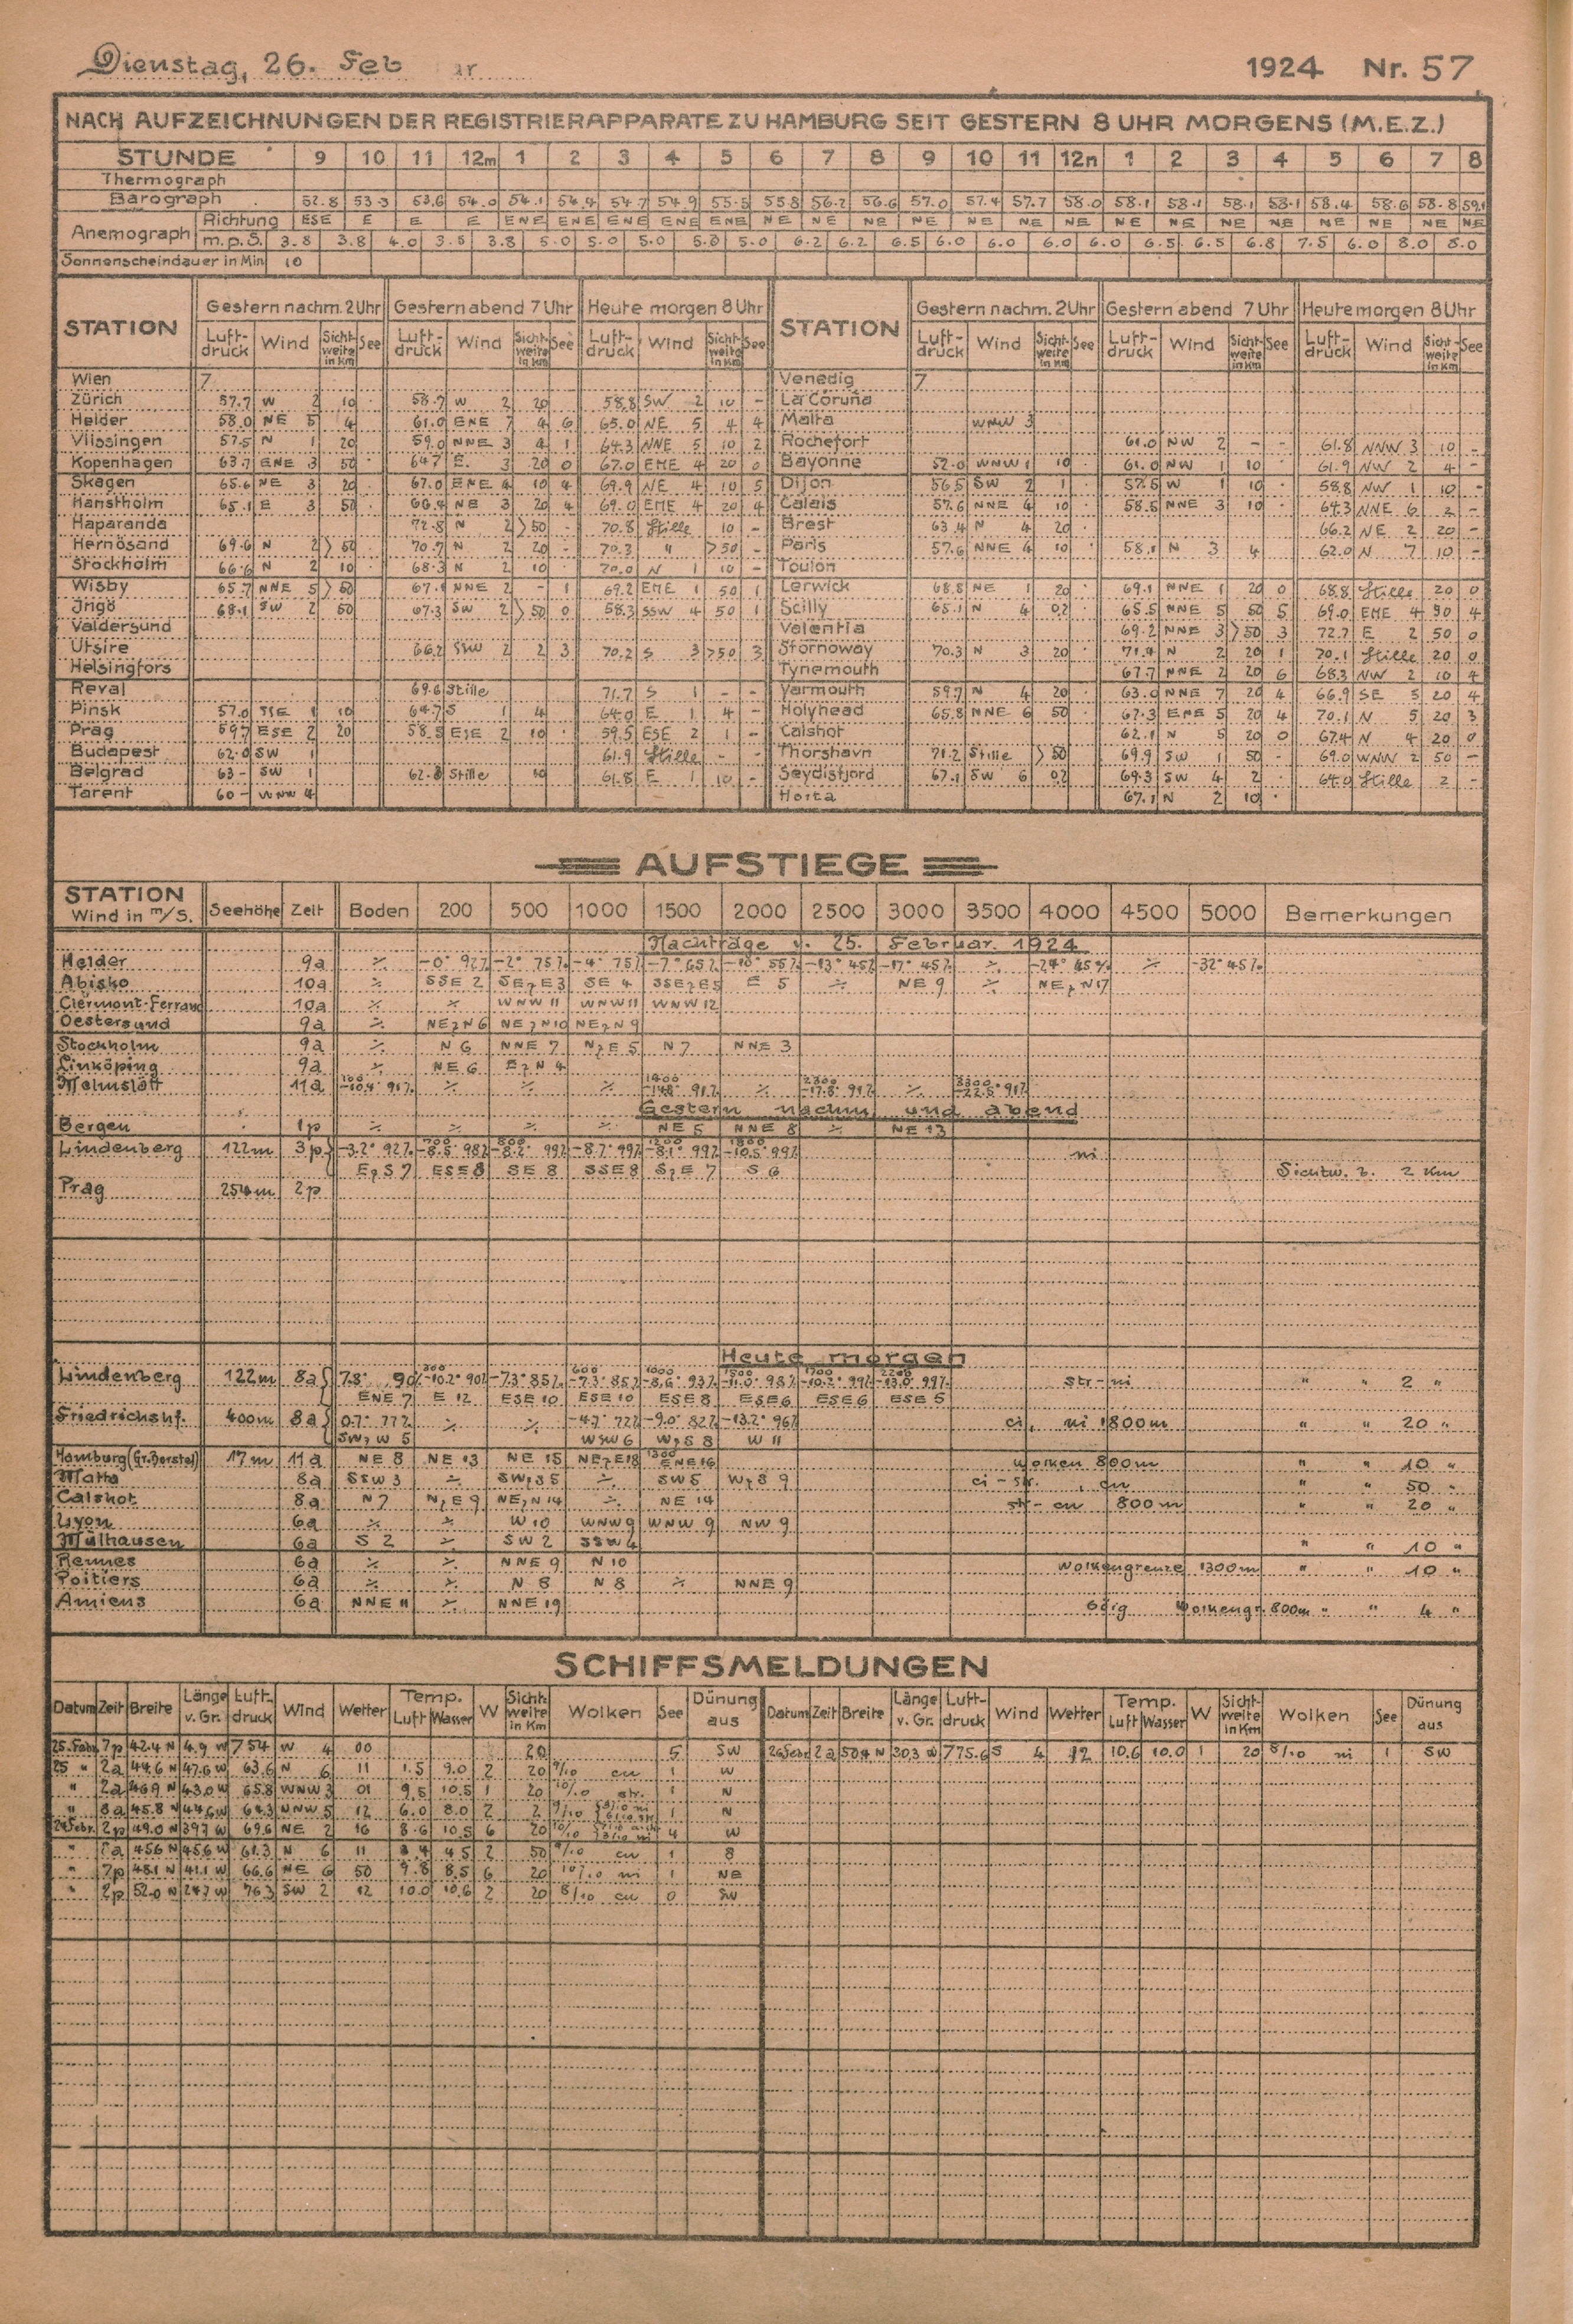 Dienstag, 26. Feb ar 1924 Nr. 57
NACH AUFZEICHNUNGEN DER REGISTRIERAPPARATE ZU HAMBURG SEIT GESTERN 8 UHR MORGENS (M.E.Z.)
STUNDE 9 10 11 12m 1 2 3 4 5 6 7 8 9 10 11 12n 1 2 3 4 5 6 7 8
Thermograph
Barograph 52.8 53.3 53.6 54.0 54.1 54.4 54.7 54.9 55.5 55.8 56.2 56.6 57.0 57.4 57.7 58.0 58.1 58.1 58.1 58.1 58.4 58.6 58.8 59.1
Anemograph Richtung ESE E E E ENE ENE ENE ENE ENE NE NE NE NE NE NE NE NE NE NE NE NE NE NE NE
m.p.S. 3.8 3.8 4.0 3.5 3.8 5.0 5.0 5.0 5.0 5.0 6.2 6.2 6.5 6.0 6.0 6.0 6.0 6.5 6.5 6.8 7.5 6.0 8.0 8.0
Sonnenscheindauer in Min 10
STATION Gestern nachm. 2 Uhr Gestern abend 7 Uhr Heute morgen 8 Uhr STATION Gestern nachm. 2 Uhr Gestern abend 7 Uhr Heute morgen 8 Uhr
Luftdruck Wind Sichtweite in Km See Luftdruck Wind Sichtweite in Km See Luftdruck Wind Sichtweite in Km See Luftdruck Wind Sichtweite in Km See Luftdruck Wind Sichtweite in Km See Luftdruck Wind Sichtweite in Km See
Wien 7 Venedig 7
Zürich 57.7 W 2 10 58.7 W 2 20 58.8 SW 2 10 - La Coruña
Helder 58.0 NE 5 4 61.0 ENE 7 4 6 65.0 NE 5 4 4 Malta WNW 3
Vlissingen 57.5 N 1 20 59.0 NNE 3 4 1 64.3 NNE 5 10 2 Rochefort 61.0 NW 2 - - 61.8 NNW 3 10 -
Kopenhagen 63.7 ENE 3 50 64.7 E. 3 20 0 67.0 ENE 4 20 0 Bayonne 52.0 WNW 1 10 61.0 NW 1 10 61.9 NW 2 4 -
Skagen 65.6 NE 3 20 67.0 ENE 4 10 4 69.9 NE 4 10 5 Dijon 56.5 SW 2 1 57.5 W 1 10 58.8 NW 1 10 -
Hanstholm 65.1 E 3 50 66.4 NE 3 20 4 69.0 ENE 4 20 4 Calais 57.6 NNE 4 10 58.5 NNE 3 10 64.3 NNE 6 2 -
Haparanda 72.8 N 2 >50 - 70.8 Stille 10 - Brest 63.4 N 4 20 66.2 NE 2 20 -
Hernösand 69.6 N 2 >50 70.7 N 2 20 - 70.3 " >50 - Paris 57.6 NNE 4 10 58.1 N 3 4 62.0 N 7 10 -
Stockholm 66.6 N 2 10 68.3 N 2 10 70.0 N 1 10 - Toulon
Wisby 65.7 NNE 5 >50 67.1 NNE 2 - 1 69.2 ENE 1 50 1 Lerwick 68.8 NE 1 20 69.1 NNE 1 20 0 68.8 Stille 20 0
Ingö 68.1 SW 2 50 67.3 SW 2 >50 0 58.3 SSW 4 50 1 Scilly 65.1 N 4 0.2 65.5 NNE 5 50 5 69.0 ENE 4 50 4
Valdersund Valentia 69.2 NNE 3 >50 3 72.7 E 2 50 0
Utsire 66.2 SSW 2 2 3 70.2 S 3 >50 3 Stornoway 70.3 N 3 20 71.4 N 2 20 1 70.1 Stille 20 0
Helsingfors Tynemouth 67.7 NNE 2 20 6 68.3 NW 2 10 4
Reval 69.6 Stille 71.7 S 1 - - Yarmouth 59.7 N 4 20 63.0 NNE 7 20 4 66.9 SE 5 20 4
Pinsk 57.0 SSE 1 10 64.7 S 1 4 64.0 E 1 4 - Holyhead 65.8 NNE 6 50 67.3 ENE 5 20 4 70.1 N 5 20 3
Prag 59.7 ESE 2 20 58.5 ESE 2 10 59.5 ESE 2 1 - Calshot 62.1 N 5 20 0 67.4 N 4 20 0
Budapest 62.0 SW 1 61.9 Stille - - Thorshavn 71.2 Stille >50 69.9 SW 1 50 - 69.0 WNW 2 50 -
Belgrad 63 - SW 1 62.8 Stille 10 61.8 E 1 10 - Seydisfjord 67.1 SW 6 0.2 69.3 SW 4 2 64.0 Stille 2 -
Tarent 60 - WNW 4 Horta 67.1 N 2 10
AUFSTIEGE
STATION Wind in m/s. Seehöhe Zeit Boden 200 500 1000 1500 2000 2500 3000 3500 4000 4500 5000 Bemerkungen
Nachträge v. 25. Februar. 1924
Helder 9a ⁒ -0° 92% -2° 75% -4° 75% -7° 65% -10° 55% -13° 45% -17° 45% ⁒ -24° 45% ⁒ -32° 45%
Abisko 10a ⁒ SSE 2 SEzE 3 SE 4 SSEzE 5 E 5 ⁒ NE 9 ⁒ NEzN 17
Clermont-Ferrand 10a ⁒ ⁒ WNW 11 WNW 11 WNW 12
Oestersund 9a ⁒ NEzN 6 NEzN 10 NEzN 9
Stockholm 9a ⁒ N 6 NNE 7 NzE 5 N 7 NNE 3
Linköping 9a ⁒ NE 6 EzN 4
Malmslätt 11a 100 -10.4° 91% ⁒ ⁒ ⁒ 1400 91% ⁒ 2300 -17.8° 91% ⁒ 3300 -22.5° 91%
Gestern nachm. und abend
Bergen 1p ⁒ ⁒ ⁒ ⁒ NE 5 NNE 8 ⁒ NE 13
Lindenberg 122m 3p -3.2° 92% 700 -8.5° 98% 800 -8.2° 99% -8.7° 99% 1200 -8.1° 99% 1800 -10.5° 99% ni
EzS 7 ESE 8 SE 8 SSE 8 SzE 7 S 6 Sichtw. z. 2 Km
Prag 254m 2p
Heute morgen
Lindenberg 122m 8a 7.8° 90% 300 -10.2° 90% -7.3° 85% 600 -7.3° 85% 1000 -8.6° 93% 1500 -11.0° 98% 1700 -10.2° 99% 2200 -13.0° 99% str-ni " " 2 "
ENE 7 E 12 ESE 10 ESE 10 ESE 8 ESE 6 ESE 6 ESE 5
Friedrichshf. 400m 8a 0.7° 77% ⁒ ⁒ -4.7° 72% -9.0° 82% -13.2° 96% ci, ni 1800m " " 20 "
SWzW 5 WSW 6 WzS 8 W 11
Hamburg (Gr. Borstel) 17m 11a NE 8 NE 13 NE 15 NEzE 18 1300 ENE 16 wolken 800m " " 10 "
Malta 8a SSW 3 ⁒ ⁒ SW 5 WzS 9 ci-str. , cu " " 50 "
Calshot 8a N 7 NzE 9 NEzN 14 ⁒ NE 14 str-cu 800m " " 20 "
Lyon 6a ⁒ ⁒ W 10 WNW 9 WNW 9 NW 9
Mülhausen 6a S 2 ⁒ SW 2 SSW 4 " " 10 "
Rennes 6a ⁒ ⁒ NNE 9 N 10 Wolkengrenze 1300m " " 10 "
Poitiers 6a ⁒ ⁒ N 8 N 8 ⁒ NNE 9
Amiens 6a NNE 11 ⁒ NNE 19 böig Wolkengr. 800m " " 4 "
SCHIFFSMELDUNGEN
Datum Zeit Breite Länge v. Gr. Luftdruck Wind Wetter Temp. Luft Wasser W Sichtweite in Km Wolken See Dünung aus Datum Zeit Breite Länge v. Gr. Luftdruck Wind Wetter Temp. Luft Wasser W Sichtweite in Km Wolken See Dünung aus
25. Febr. 7p 42.4 N 4.9 W 754 W 4 00 20 5 SW 26 Febr. 2a 50.4 N 30.3 W 775.6 S 4 12 10.6 10.0 1 20 8/10 ni 1 SW
25 " 2a 44.6 N 47.6 W 63.6 N 6 11 1.5 9.0 2 20 9/10 cu 1 W
" 2a 46.9 N 43.0 W 65.8 WNW 3 01 9.5 10.5 1 20 10/10 str. 1 N
" 8a 45.8 N 44.6 W 64.3 NNW 5 12 6.0 8.0 2 2 9/10 1 N
24 Febr. 2p 49.0 N 39.7 W 69.6 NE 2 16 8.6 10.5 6 20 10/10 4 W
" 45.6 N 45.6 W 61.3 N 6 11 4.5 2 50 9/10 cu 1 8
" 7p 48.1 N 41.1 W 66.6 NE 6 50 9.8 8.5 6 20 10/10 ni 1 NE
" 2p 52.0 N 24.7 W 76.3 SW 2 12 10.0 10.6 2 20 8/10 cu 0 SW